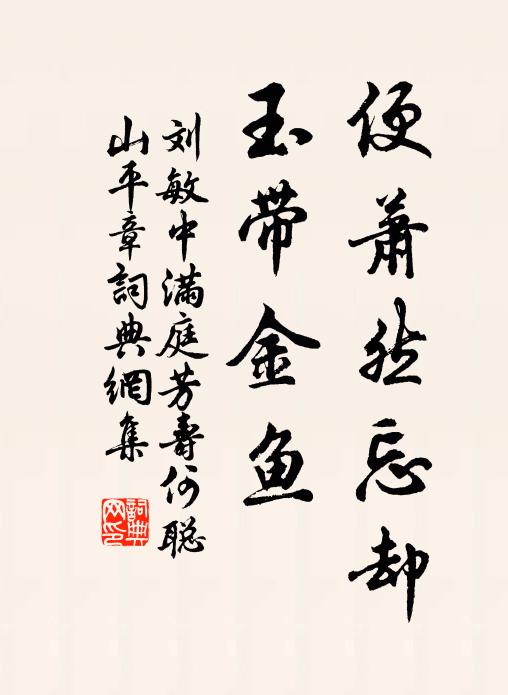 便萧然忘却
玉带金鱼
刘敏中满庭芳寿何聪
山平章詞典網集
詞典
网印